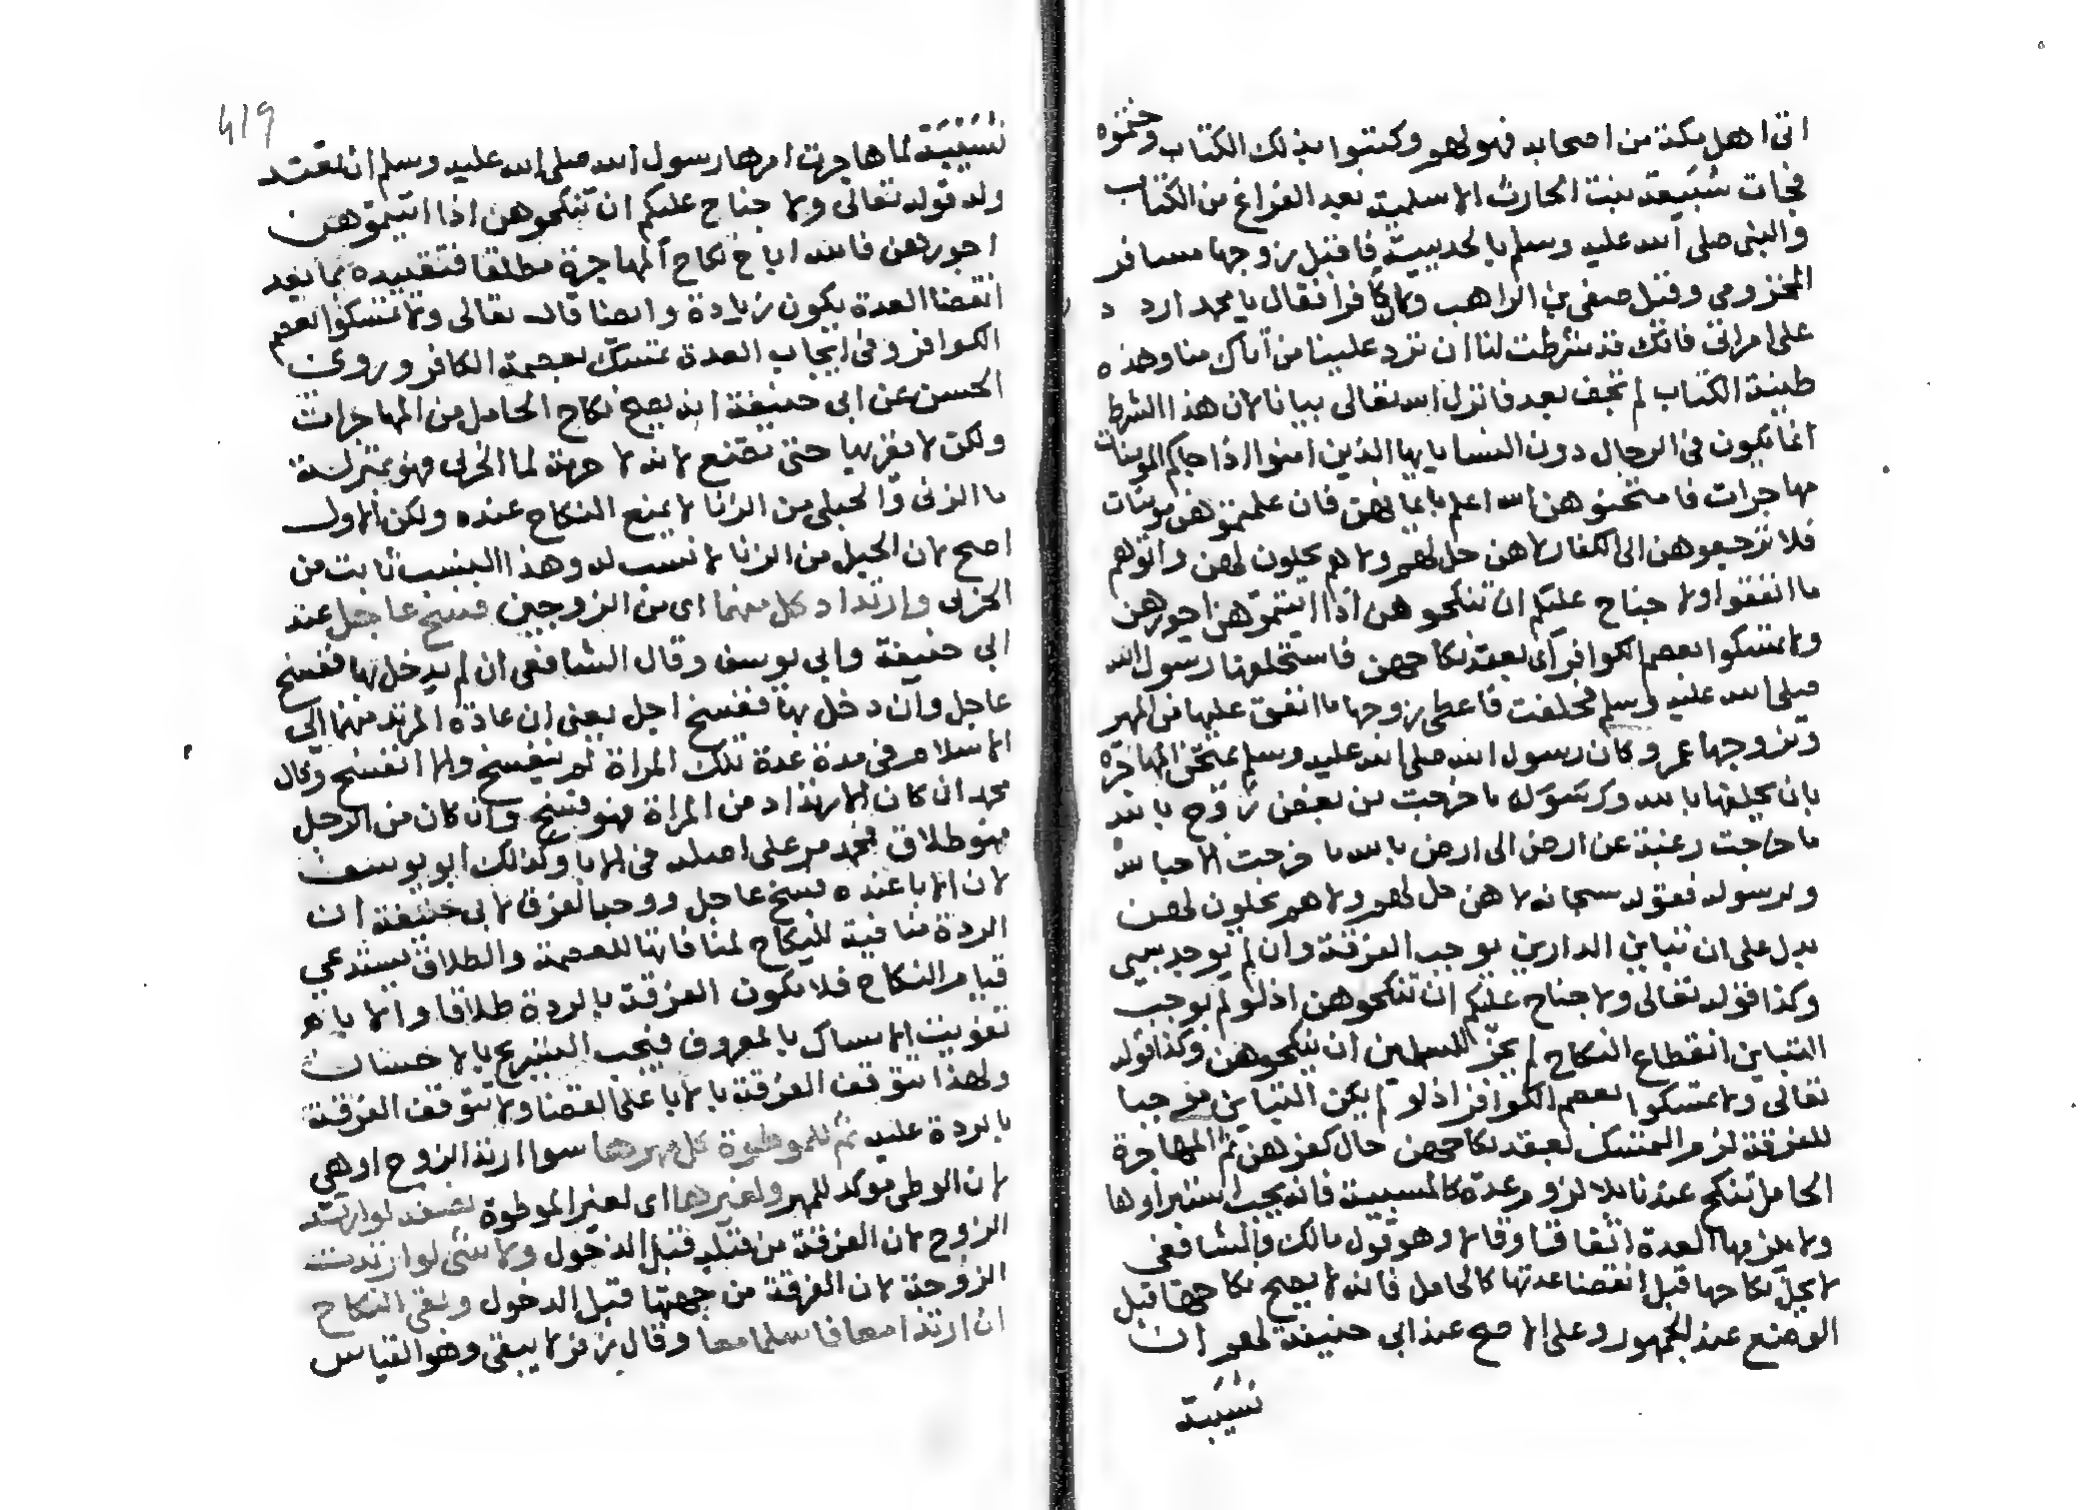 اتى اهل مكة من اصحابه فهو لهم وكتبوا بذلك الكتاب وختموه
فجات سُبَيعة بنت الحارث الاسلمية بعد الفراغ من الكتاب
والنبى صلى الله عليه وسلم بالحديبية فاقبل زوجها مسافر
المخزومى وقيل صيفى بن الراهب وكان كافرا فقال يا محمد اردد
على امراتى فانك قد شرطت لنا ان ترد علينا من اتاك منا وهذه
طينة الكتاب لم تجف بعد فانزل الله تعالى بيانا لان هذا الشرط
انما يكون فى الرجال دون النسا يايها الذين امنوا اذا جاكم المومنات
مهاجرات فامتحنوهن الله اعلم بايمانهن فان علمتموهن مومنات
فلا ترجعوهن الى الكفار لاهن حل لهم ولا هم يحلون لهن واتوهم
ما انفقوا ولا جناح عليكم ان تنكحوهن اذا اتيتموهن اجورهن
ولا تمسكوا بعصم الكوافر اى بعقد نكاحهن فاستحلفها رسول الله
صلى الله عليه وسلم فحلفت فاعطى زوجها ما انفق عليها من المهر
وتزوجها عمر وكان رسول الله صلى الله عليه وسلم يمتحن المهاجرة
بان يحلفها بالله ورسوله ما خرجت من بغض زوج بالله
ما خرجت رغبة عن ارض الى ارض بالله ما خرجت الا حبا لله
ولرسوله فقوله سبحانه لا هن حل لهم ولا هم يحلون لهن
يدل على ان تباين الدارين يوجب الفرقة وان لم يوجد سبى
وكذا قوله تعالى ولا جناح عليكم ان تنكحوهن اذ لو لم يوجب
التباين انقطاع النكاح لم يجز للمسلمين ان ينكحوهن وكذا قوله
تعالى ولا تمسكوا بعصم الكوافر اذ لو لم يكن التباين موجبا
للفرقة لزم التمسك بعقد نكاحهن حال كفرهن ثم المهاجرة
الحامل تنكح عندنا بلا لزوم عدة كالمسبية فانه يجب استبراوها
ولا يلزمها العدة اتفاقا وقالا وهو قول مالك والشافعى
لا يحل نكاحها قبل انقضا عدتها كالحامل فانه لا يصح نكاحها قبل
الوضع عند الجمهور وعلى الاصح عند ابى حنيفة لهم ان
نُسَيبة
419
نُسَيْبَة لما هاجرت امرها رسول الله صلى الله عليه وسلم ان تعتد
وله قوله تعالى ولا جناح عليكم ان تنكحوهن اذا اتيتموهن
اجورهن فالله اباح نكاح المهاجرة مطلقا فتقييده بما بعد
انقضا العدة يكون زيادة وايضا قال تعالى ولا تمسكوا بعصم
الكوافر وفى ايجاب العدة تمسك بعصمة الكافر وروى
الحسن عن ابى حنيفة انه يصح نكاح الحامل من المهاجرات
ولكن لا يقربها حتى تضع لانه لا حرمة لما الحربى فهو بمنزلة
ما الزنى والحبلى من الزنا لا يمنع النكاح عنده ولكن الاول
اصح لان الحبل من الزنا لا نسب له وهذا النسب ثابت من
الحربى وارتداد كل منهما اى من الزوجين فسخ عاجل عند
ابى حنيفة وابى يوسف وقال الشافعى ان لم يدخل بها ففسخ
عاجل وان دخل بها ففسخ اجل يعنى ان عاد المرتد منهما الى
الاسلام فى مدة عدة تلك المراة لم ينفسخ والا انفسخ وقال
محمد ان كان الارتداد من المراة فهو فسخ وان كان من الرجل
فهو طلاق فمحمد مر على اصله فى الابا وكذلك ابو يوسف
لان الابا عنده فسخ عاجل ووجه الفرق لابى حنيفة ان
الردة منافية للنكاح لمنافاتها للعصمة والطلاق يستدعى
قيام النكاح فلا يكون الفرقة بالردة طلاقا والابا هو
تفويت الامساك بالمعروف فيجب التسريح بالاحسان
ولهذا يتوقف الفرقة بالابا على القضا ولا يتوقف الفرقة
بالردة عليه ثم للموطوة كل مهرها سوا ارتد الزوج او هى
لان الوطى موكد للمهر ولغيرها اى لغير الموطوة نصفه لو ارتد
الزوج لان الفرقة من قبله قبل الدخول ولا شى لو ارتدت
الزوجة لان الفرقة من جهتها قبل الدخول وبقى النكاح
ان ارتدا معا فاسلما معا وقال زفر لا يبقى وهو القياس